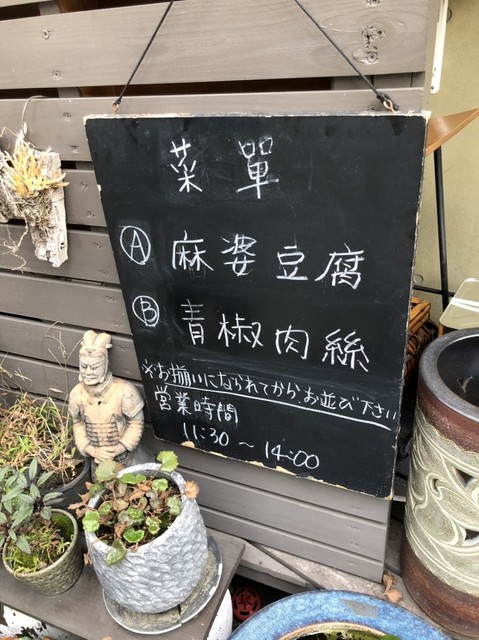 菜單
Ⓐ 麻婆豆腐
Ⓑ 青椒肉絲
※お揃いになられてからお並び下さい
営業時間
11:30～14:00